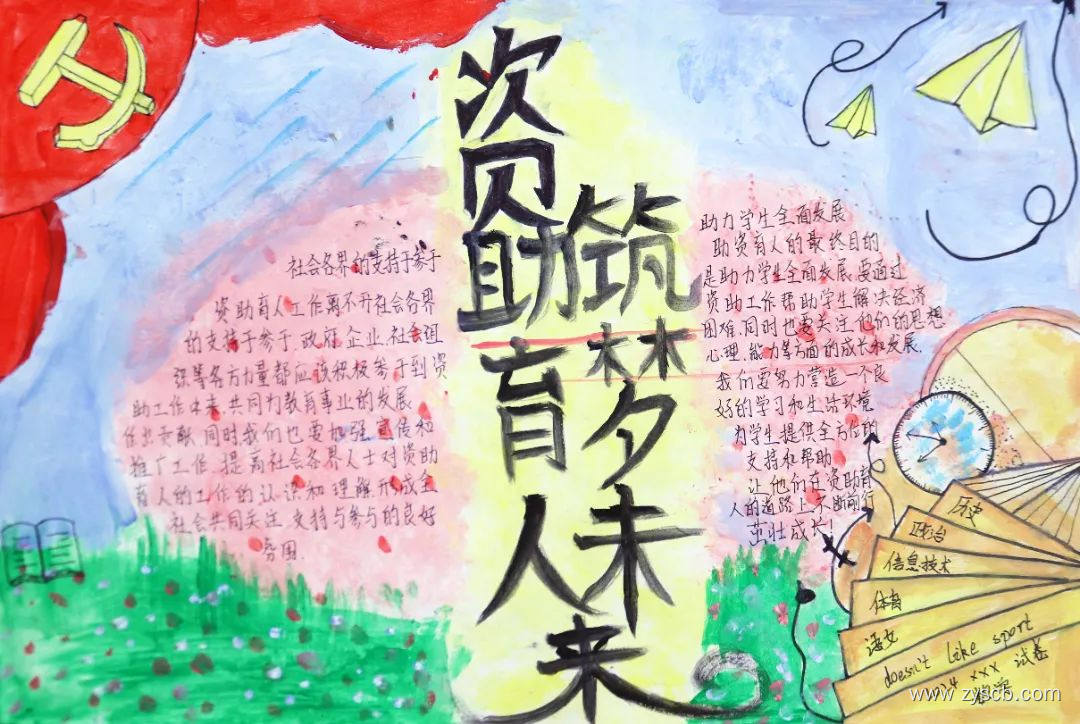 资助育人
筑梦未来
社会各界的支持于参于
资助育人工作离不开社会各界
的支持于参于,政府,企业,社会组
织等各方力量都应该积极参于到资
助工作中来,共同为教育事业的发展
作出贡献,同时我们也要加强宣传和
推广工作,提高社会各界人士对资助
育人的工作的认识和理解,形成全
社会共同关注,支持与参与的良好
氛围.
助力学生全面发展
助资育人的最终目的
是助力学生全面发展,要通过
资助工作帮助学生解决经济
困难,同时也要关注他们的思想
心理,能力等方面的成长和发展.
我们要努力营造一个良
好的学习和生活环境
为学生提供全方位的
支持和帮助
让他们在资助育
人的道路上不断前行
茁壮成长!
历史
政治
信息技术
体育
语文
doesn't like sport
xxx 试卷
www.zyscb.com